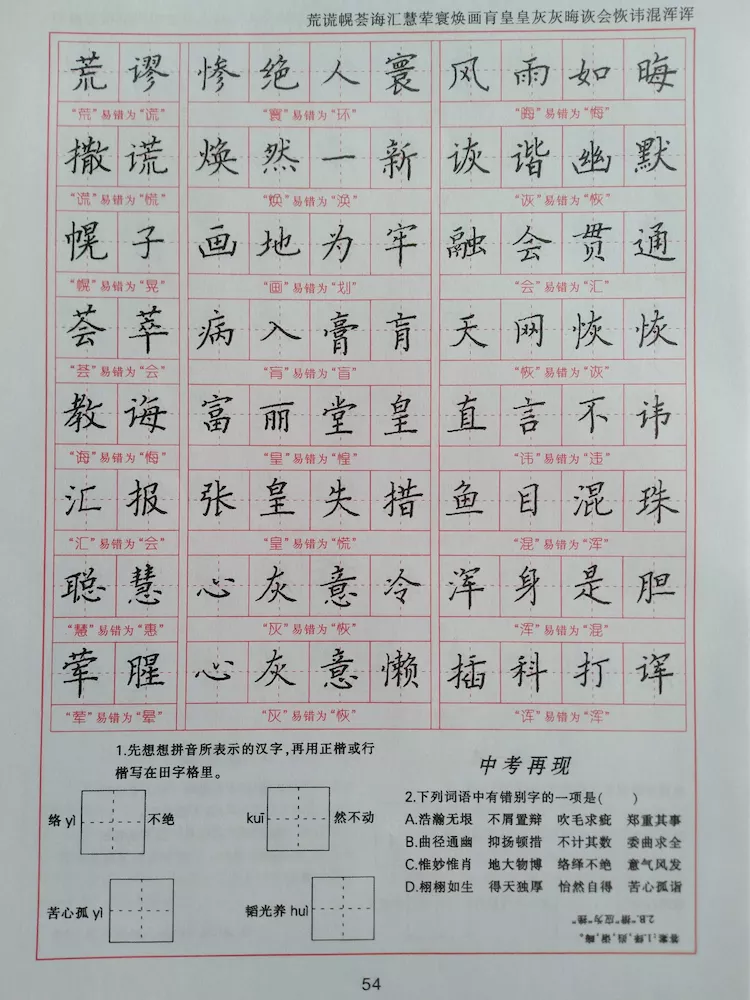 荒谎幌荟诲汇慧荤寰焕画肓皇皇灰灰晦诙会恢讳混浑诨
荒谬 惨绝人寰 风雨如晦
“荒”易错为“谎” “寰”易错为“环” “晦”易错为“悔”
撒谎 焕然一新 诙谐幽默
“谎”易错为“慌” “焕”易错为“涣” “诙”易错为“恢”
幌子 画地为牢 融会贯通
“幌”易错为“晃” “画”易错为“划” “会”易错为“汇”
荟萃 病入膏肓 天网恢恢
“荟”易错为“会” “肓”易错为“盲” “恢”易错为“诙”
教诲 富丽堂皇 直言不讳
“诲”易错为“悔” “皇”易错为“惶” “讳”易错为“违”
汇报 张皇失措 鱼目混珠
“汇”易错为“会” “皇”易错为“慌” “混”易错为“浑”
聪慧 心灰意冷 浑身是胆
“慧”易错为“惠” “灰”易错为“恢” “浑”易错为“混”
荤腥 心灰意懒 插科打诨
“荤”易错为“晕” “灰”易错为“恢” “诨”易错为“浑”
1.先想想拼音所表示的汉字,再用正楷或行
楷写在田字格里。
络 yì 不绝 kuī 然不动
苦心孤 yì 韬光养 huì
中考再现
2.下列词语中有错别字的一项是( )
A.浩瀚无垠 不屑置辩 吹毛求疵 郑重其事
B.曲径通幽 抑扬顿措 不计其数 委曲求全
C.惟妙惟肖 地大物博 络绎不绝 意气风发
D.栩栩如生 得天独厚 怡然自得 苦心孤诣
答案:1.绎;岿;诣;晦。
2.B.“措”应为“挫”
54